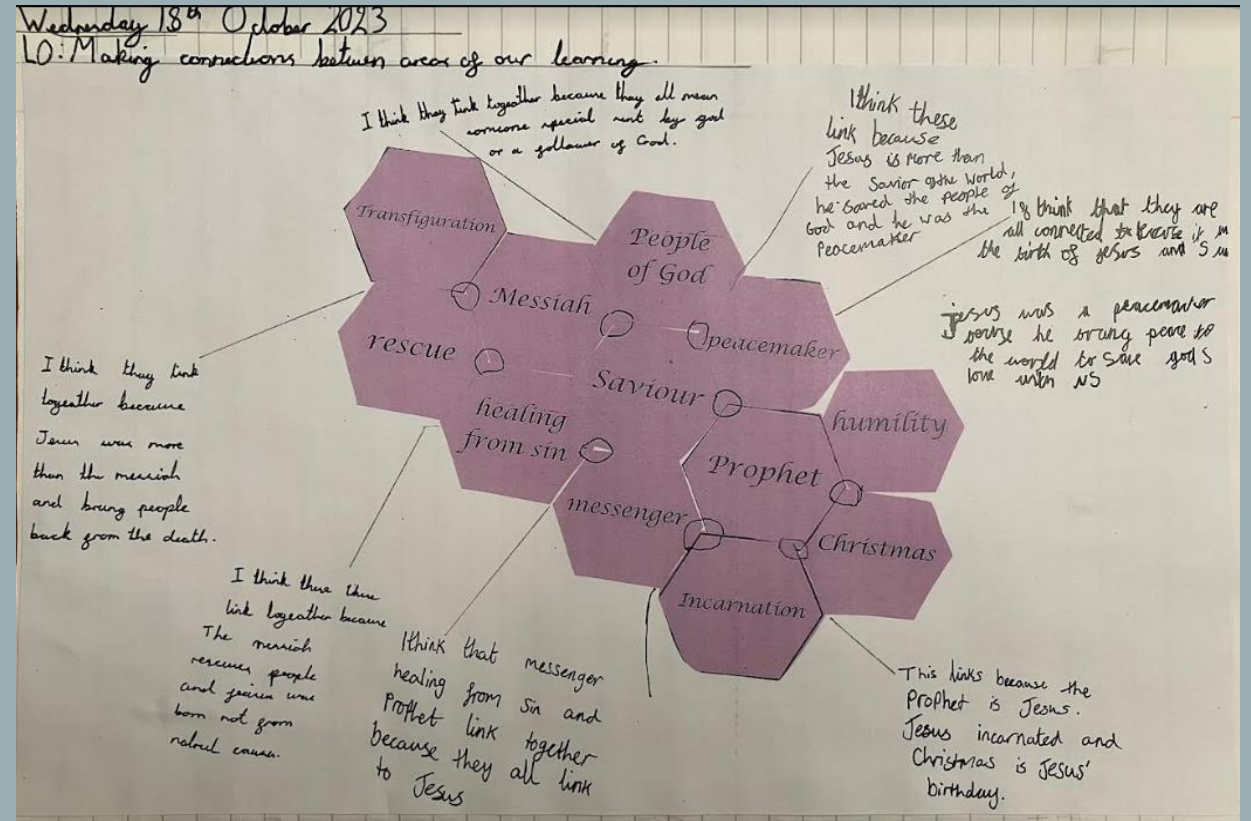 Wednesday 18th October 2023
LO: Making connections between areas of our learning.
I think they link togeather because they all mean
someone special sent by god
or a follower of God.
I think these
link because
Jesus is more than
the Savior of the World,
he saved the people of
God and he was the
Peacemaker
I think that they are
all connected because it is
the birth of jesus and
jesus was a peacemaker
he brang peace to
the world to save gods
love with us
Transfiguration
People
of God
Messiah
peacemaker
rescue
Saviour
healing
from sin
humility
Prophet
messenger
Christmas
Incarnation
I think they link
togeather because
Jesus was more
than the messiah
and brang people
back from the death.
I think these three
link togeather because
The messiah
rescues people
and was
born not from
I think that messenger
healing from sin and
Prophet link together
because they all link
to Jesus
This links because the
Prophet is Jesus.
Jesus incarnated and
Christmas is Jesus'
birthday.